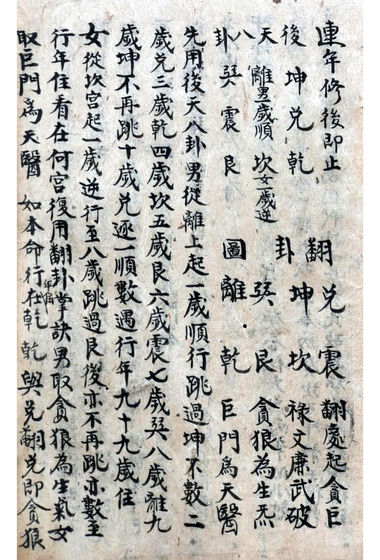 連年修後即止 翻 兌 震 翻處起貪巨
後 坤 兌 乾 卦 坤 坎 祿文廉武破
天 離男一歲順 坎女一歲逆 巽 艮 貪狼為生炁
八卦 巽 震 艮 圖 離 乾 巨門為天醫
先用後天八卦男從離上起一歲順行跳過坤不數二
歲兌三歲乾四歲坎五歲艮六歲震七歲巽八歲離九
歲坤不再跳十歲兌逐一順數遇行年九十九歲住
女從坎宮起一歲逆行至八歲跳過艮後亦不再跳亦數至
行年住看在何宮復用翻卦掌訣男取貪狼為生氣女
取巨門為天醫 如本命行在乾 乾與兌翻兌即貪狼